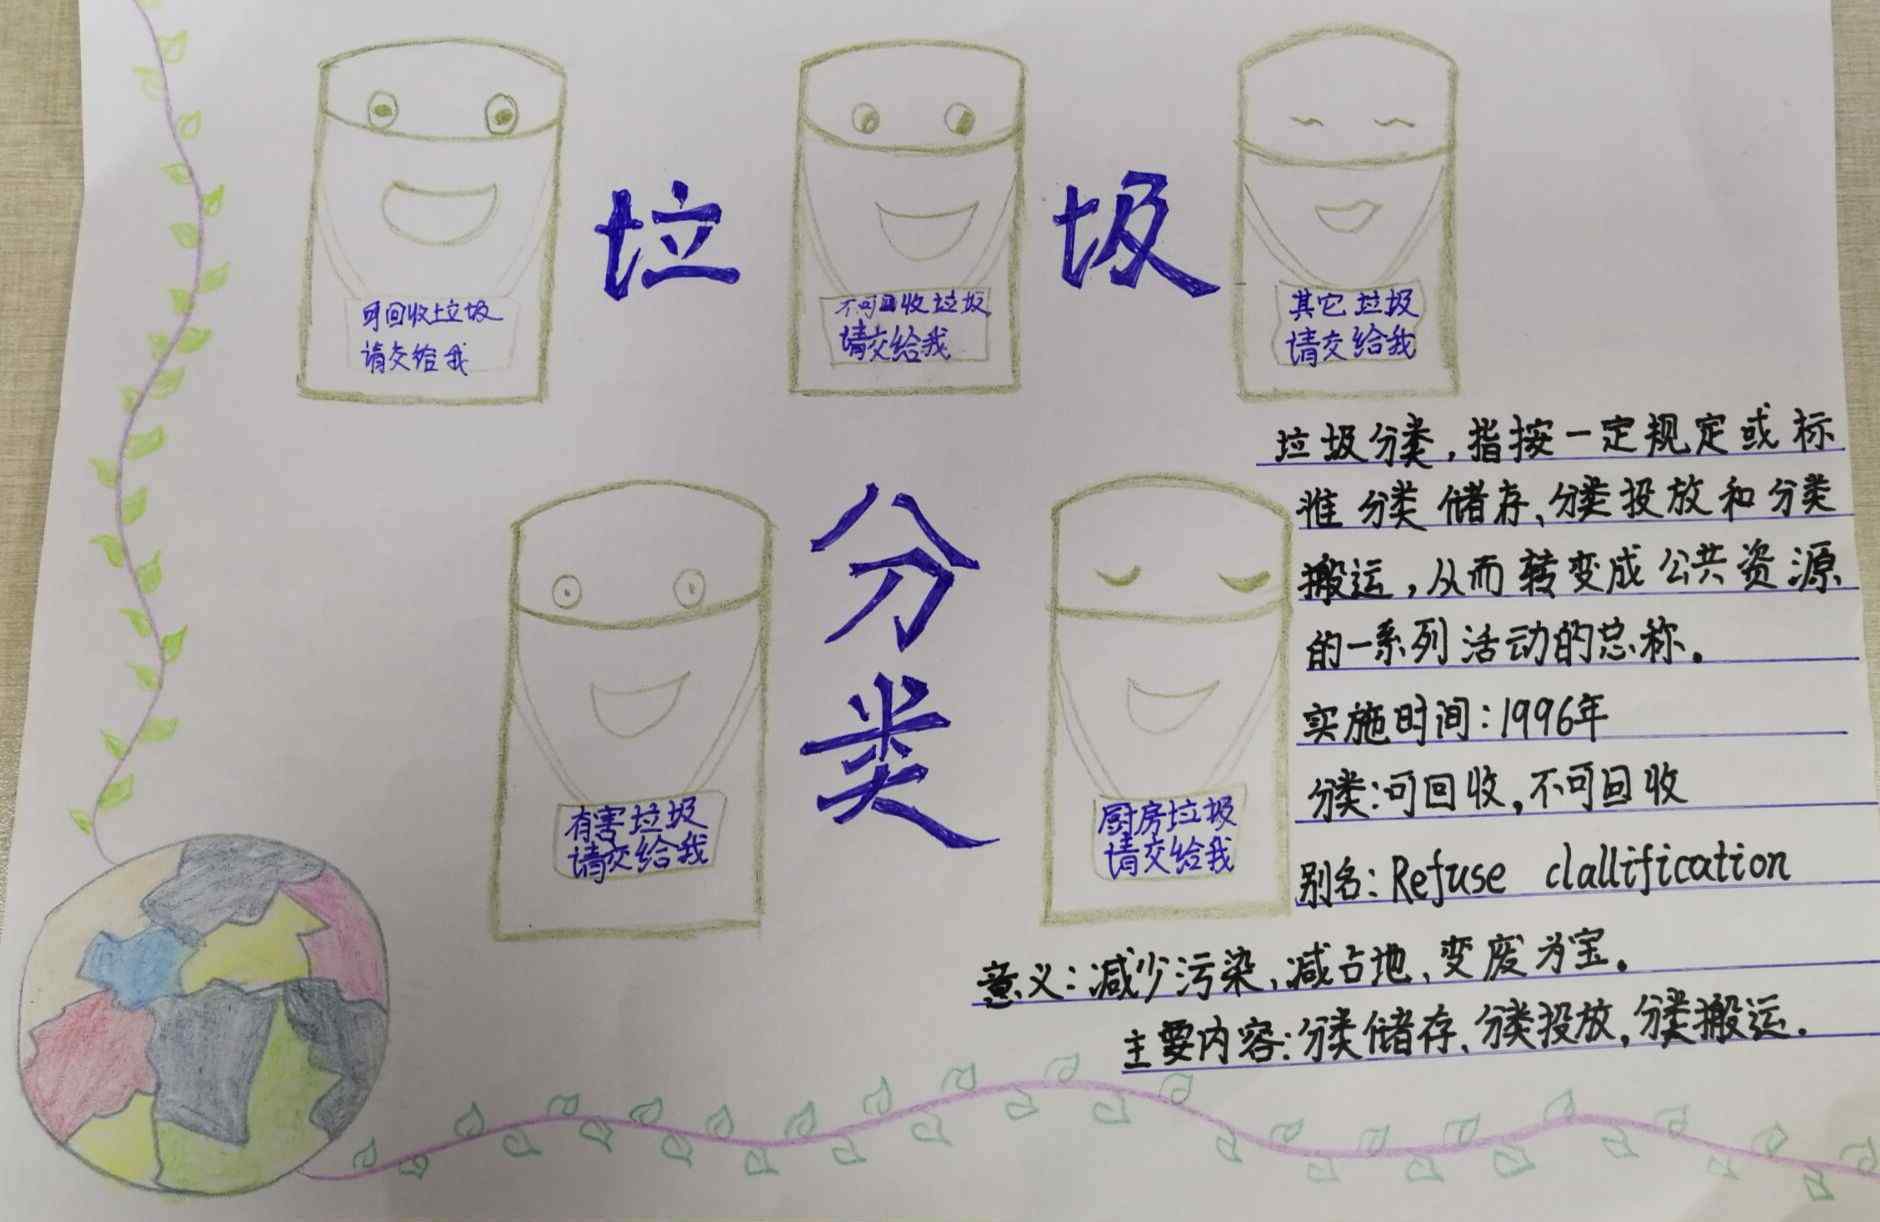 可回收垃圾
请交给我
垃
不可回收垃圾
请交给我
圾
其它垃圾
请交给我
分
类
有害垃圾
请交给我
厨房垃圾
请交给我
垃圾分类，指按一定规定或标
准分类储存、分类投放和分类
搬运，从而转变成公共资源
的一系列活动的总称。
实施时间：1996年
分类：可回收，不可回收
别名：Refuse clallification
意义：减少污染、减占地、变废为宝。
主要内容：分类储存、分类投放，分类搬运．